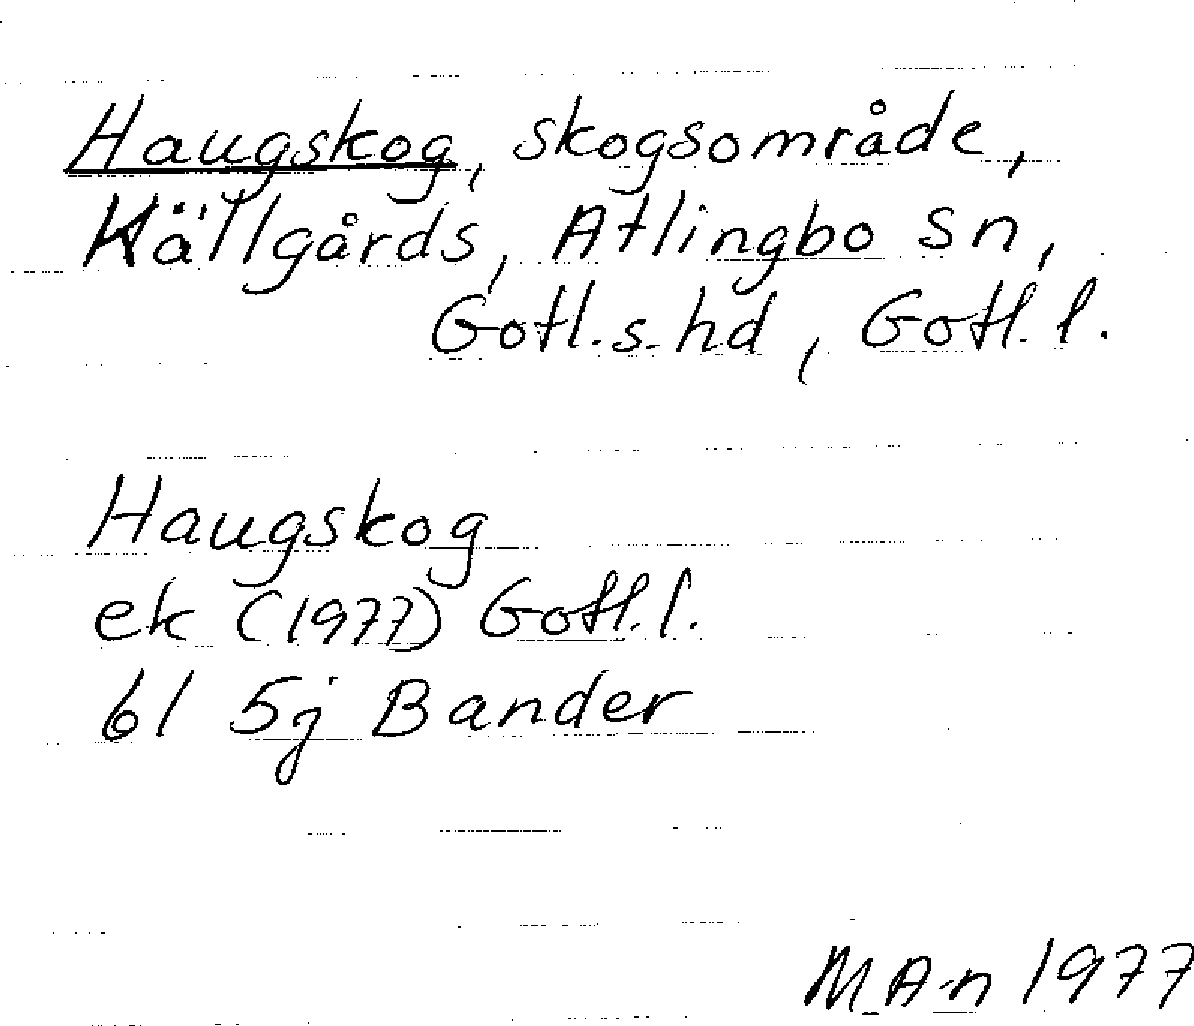 Haugskog, skogsområde,
Källgårds, Atlingbo sn,
Gotl. s. hd, Gotl. l.
Haugskog
ek (1977) Gotl. l.
bl 5j Bander
MA-n 1977